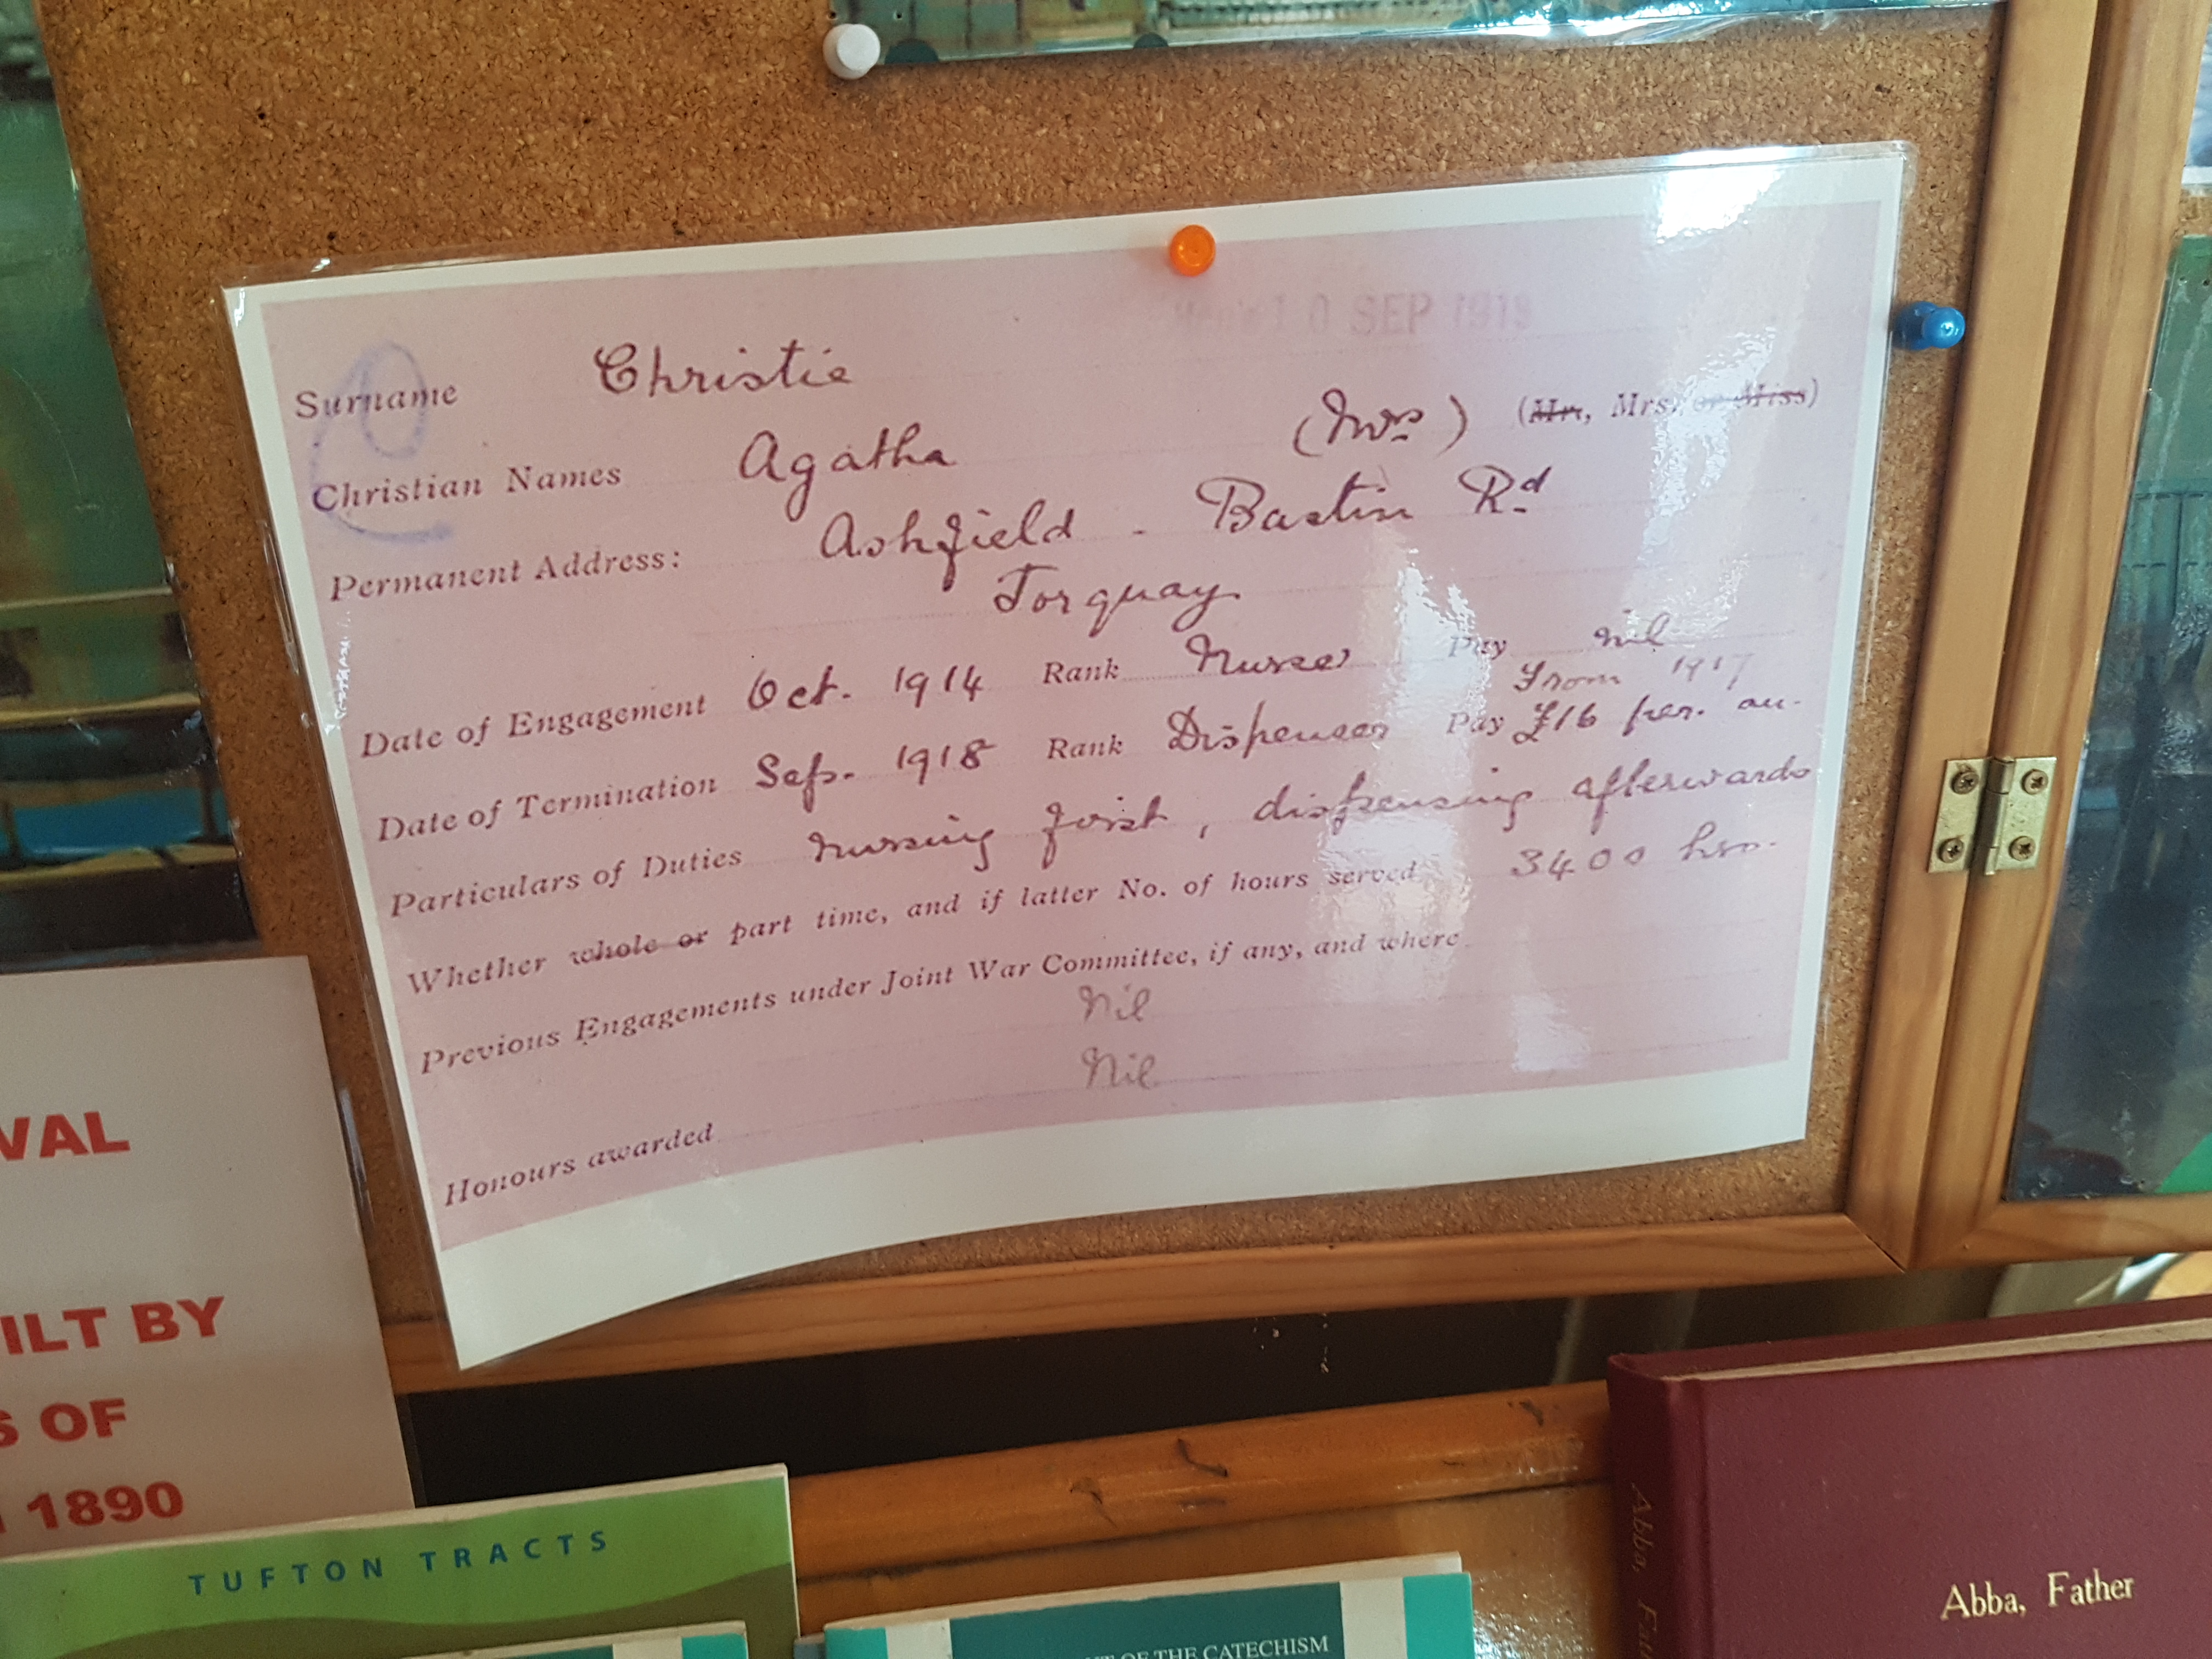 10 SEP 1919
Surname Christie
(Mr, Mrs, or Miss)
Christian Names Agatha (Mrs)
Permanent Address: Ashfield - Bartin Rd
Torquay
Date of Engagement Oct. 1914 Rank Nurse Pay nil
From 1917
Date of Termination Sep. 1918 Rank Dispenser Pay £16 per. an.
Particulars of Duties Nursing first, dispensing afterwards
Whether whole or part time, and if latter No. of hours served 3400 hrs.
Previous Engagements under Joint War Committee, if any, and where
Nil
Nil
Honours awarded
VAL
ILT BY
S OF
1890
TUFTON TRACTS
OF THE CATECHISM
Abba, Father
Abba,